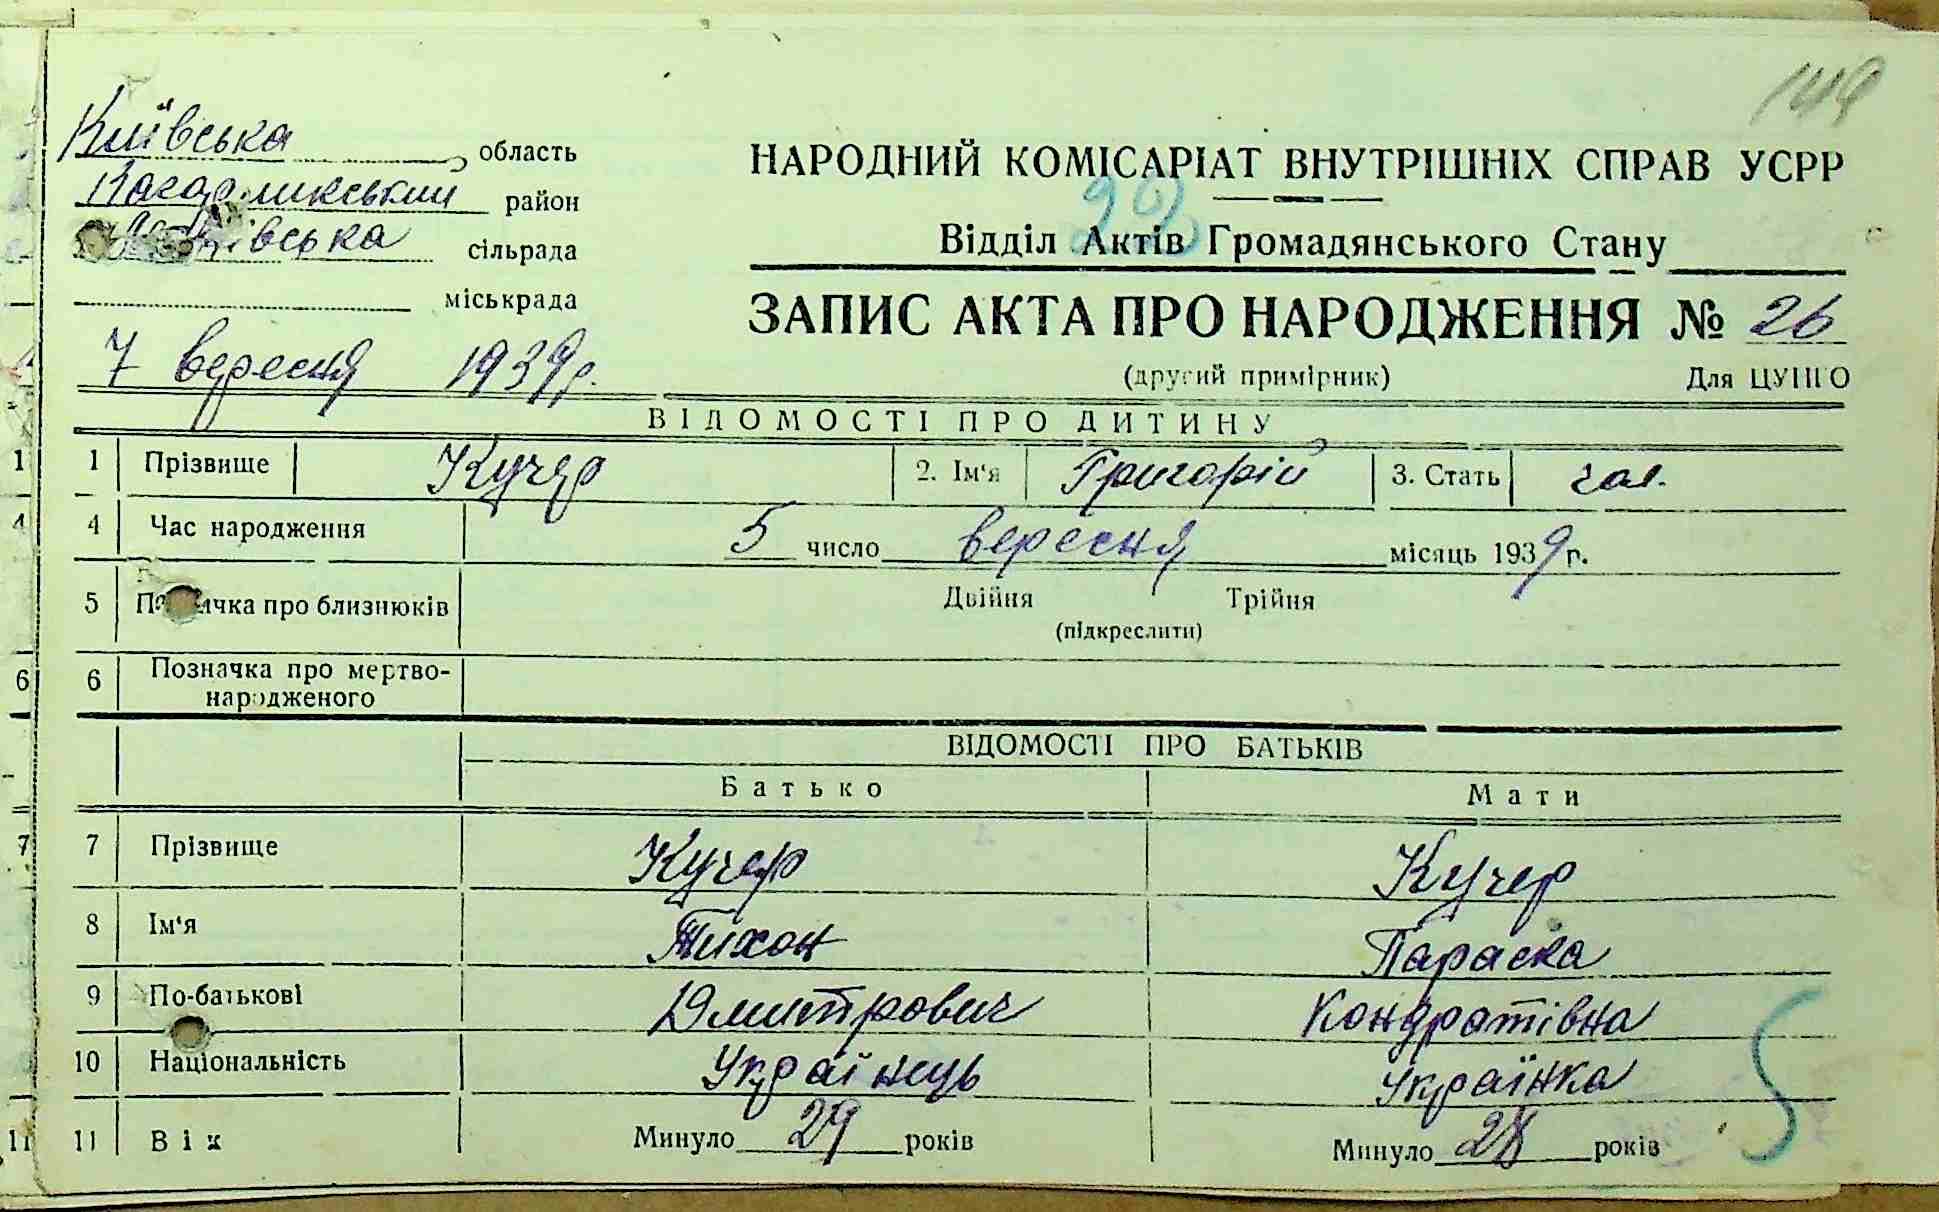 149
Київська область
Кагарликський район
сільрада
міськрада
7 вересня 1939 р.
НАРОДНИЙ КОМІСАРІАТ ВНУТРІШНІХ СПРАВ УСРР
22
Відділ Актів Громадянського Стану
ЗАПИС АКТА ПРО НАРОДЖЕННЯ № 26
(другий примірник) Для ЦУНГО
ВІДОМОСТІ ПРО ДИТИНУ
1 1 Прізвище Кучер 2. Ім'я Григорій 3. Стать чол.
4 4 Час народження 5 число вересня місяць 1939 р.
5 про близнюків Двійня Трійня
(підкреслити)
6 6 Позначка про мертво-
народженого
ВІДОМОСТІ ПРО БАТЬКІВ
Батько Мати
7 7 Прізвище Кучер Кучер
8 Ім'я Тихон Параска
9 По-батькові Дмитрович Кондратівна
10 Національність Українець Українка
11 11 Вік Минуло 29 років Минуло 28 років